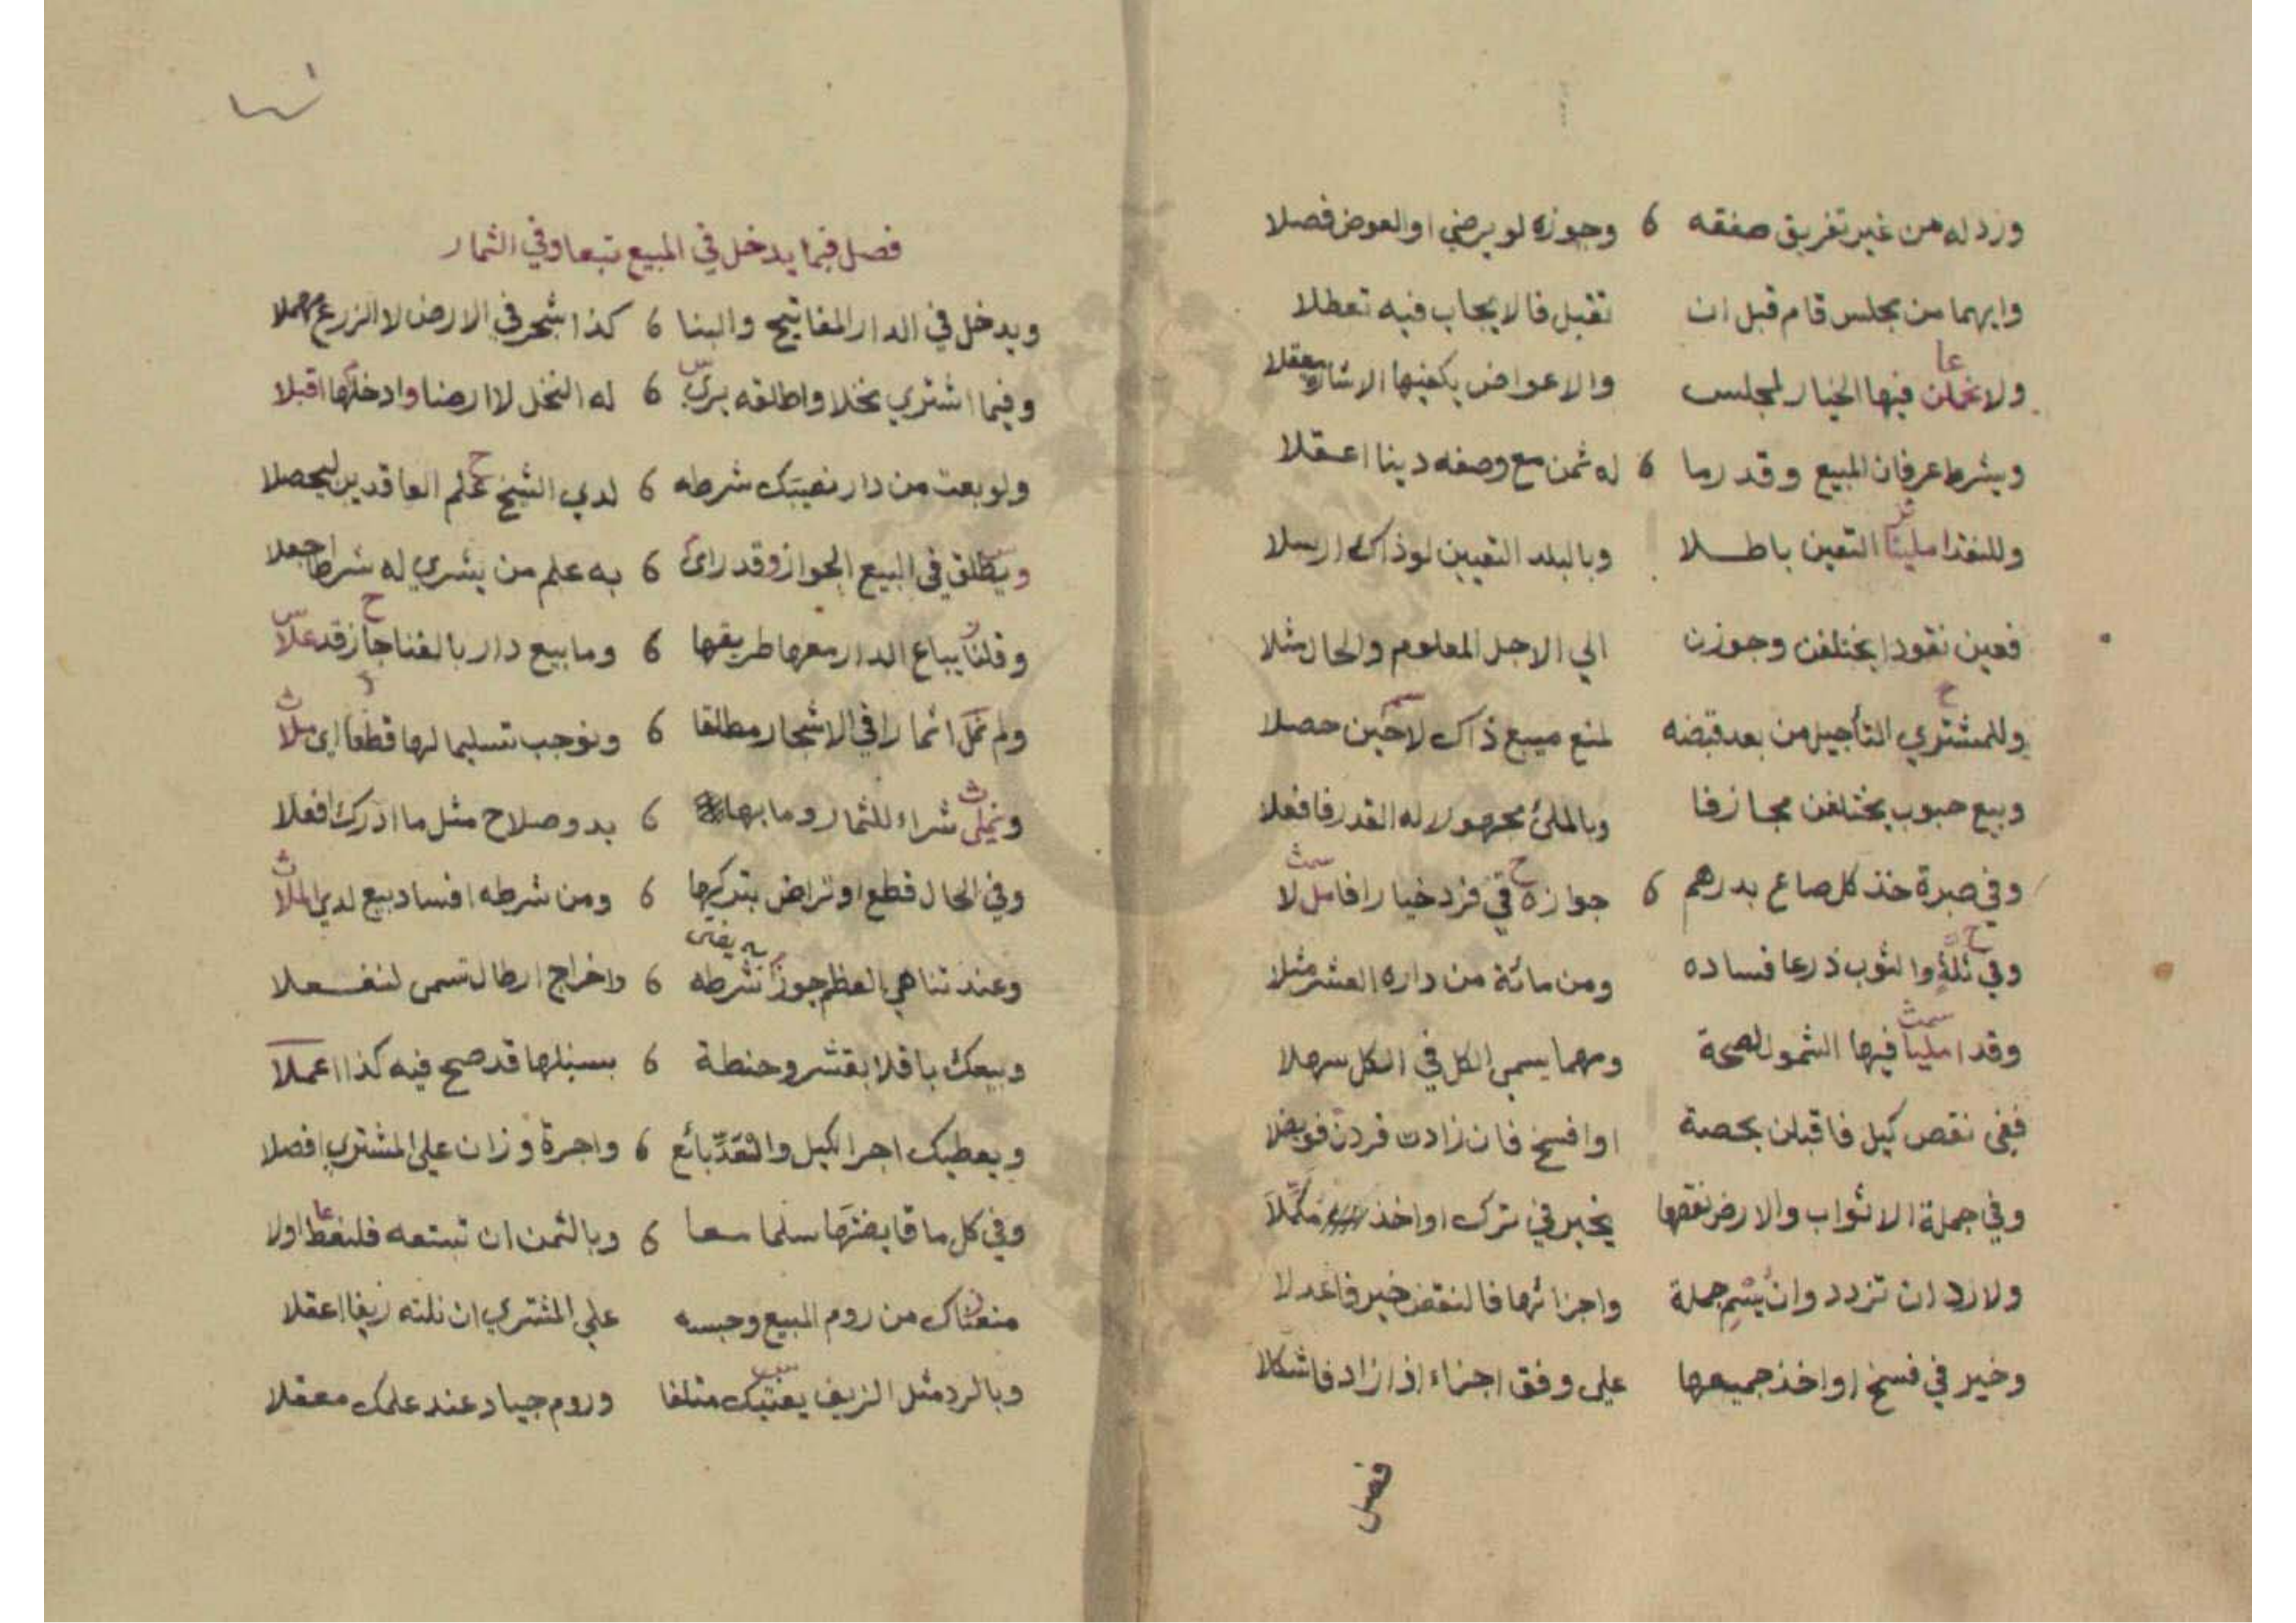 ورد له من غير تفريق صفقه 6 وجوزه لو يرضي او العوض فصلا
وايهما من مجلس قام قبل ان تقبل فالايجاب فيه تعطلا
ولا فيها الخيار لمجلس والاعواض يكفيها الاشارة
ويشرط عرفان المبيع وقدر ما 6 له ثمن مع وصفه دينا اعقلا
وللنقد املينا التعين باطلا وبالبلد التعيين لو ذاك ارسلا
فعين نقودا يختلفن وجوزن الي الاجل المعلوم والحال مثلا
وللمشتري التأجيل من بعد قبضه لمنع مبيع ذاك لا حين حصلا
وبيع حبوب يختلفن مجازفا وبالملئ مجهولا له القدر فافعلا
وفي صبرة خذ كل صاع بدرهم 6 جوازه في فرد خيارا فامل لا
وفي ثلة والثوب ذرعا فساده ومن مائة من داره العشر مثلا
وقد امليا فيها الشمول لصحة ومهما يسمى الكل في الكل سهلا
ففي نقص كيل فاقبلن بحصة او افسخ فان زادت فردن
وفي جملة الاثواب والارض نقصها يخير في ترك او اخذ مكملا
ولا رد ان تزدد وان يتم جملة واجزائها فالنقض خير فاعدلا
وخير في فسخ او اخذ جميعها على وفق اجزاء اذا زاد فاشكلا
فصل
فصل فيما يدخل في المبيع تبعا وفي الثمار
ويدخل في الدار المفاتيح والبنا 6 كذا شجر في الارض لا الزرع مهملا
وفيما اشتري نخلا واطلقه يرى 6 له النخل لا ارضا وادخلها اقبلا
ولو بعت من دار نصيبك شرطه 6 لدي الشيخ علم العاقدين ليحصلا
ويطلق في البيع الجواز وقد راى 6 به علم من يشري له شرطا اجعلا
وقلنا يباع الدار معها طريقها 6 وما بيع دار بالفنا جاز قد علا
ولم نمل اثمارا في الاشجار مطلقا 6 ونوجب تسليما لها قطعا اي ملا
ونملى شراء للثمار وما بها 6 بدو صلاح مثل ما ادرك افعلا
وفي الحال قطع او تراض بتركها 6 ومن شرطه افساد بيع لدي الملا
به يفتى
وعند تناهي العظم جوز شرطه 6 واخراج ارطال تسمى لنفعلا
وبيعك باقلا بقشر وحنطة 6 بسنبلها قد صح فيه كذا اعملا
ويعطيك اجر الكيل والنقد بائع 6 واجرة وزان على المشتري افصلا
وفي كل ما قايضتها سلما معا 6 وبالثمن ان تبتعه فلنعط اولا
منعناك من روم المبيع وحبسه علي المشتري ان نلته زيفا اعقلا
وبالرد مثل الزيف يفتيك متلفا وروم جياد عند علمك معقلا